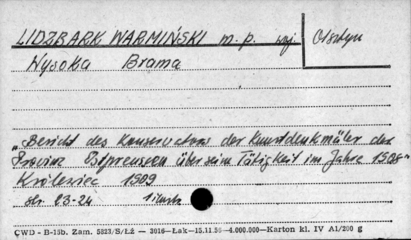 LIDZBARK WARMIŃSKI m. p. woj. Olsztyn
Wysoka Brama
"Bericht des Konservators der Kunstdenkmäler der
Provinz Ostpreussen über seine Tätigkeit im Jahre 1908"
Królewiec 1909
str. 23-24 1 ilustr.
ĆWD - B-15b. Zam. 5823/S/Łż — 2016—Łak—15.11.56—4.000.000—Karton kl. IV A1/200 g